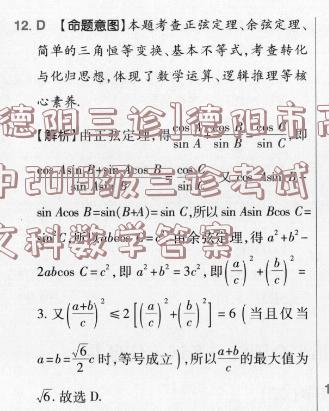 12. D 【命题意图】本题考查正弦定理、余弦定理、
简单的三角恒等变换、基本不等式,考查转化
与化归思想,体现了数学运算、逻辑推理等核
心素养.
【解析】由正弦定理,得 cos A/sin A + cos B/sin B = cos C/sin C,即
cos Asin B+sin Acos B/sin Asin B = cos C/sin C. 又 cos Asin B+
sin Acos B=sin(B+A)=sin C,所以 sin Asin Bcos C=
sin² C,所以 abcos C=c². 由余弦定理,得 a²+b²−
2abcos C=c²,即 a²+b²=3c²,即(a/c)²+(b/c)²=
3. 又((a+b)/c)²≤2[(a/c)²+(b/c)²]=6(当且仅当
a=b=(√6/2)c 时,等号成立),所以(a+b)/c 的最大值为
√6. 故选 D.
德阳三诊]德阳市高
中2018级三诊考试
文科数学答案